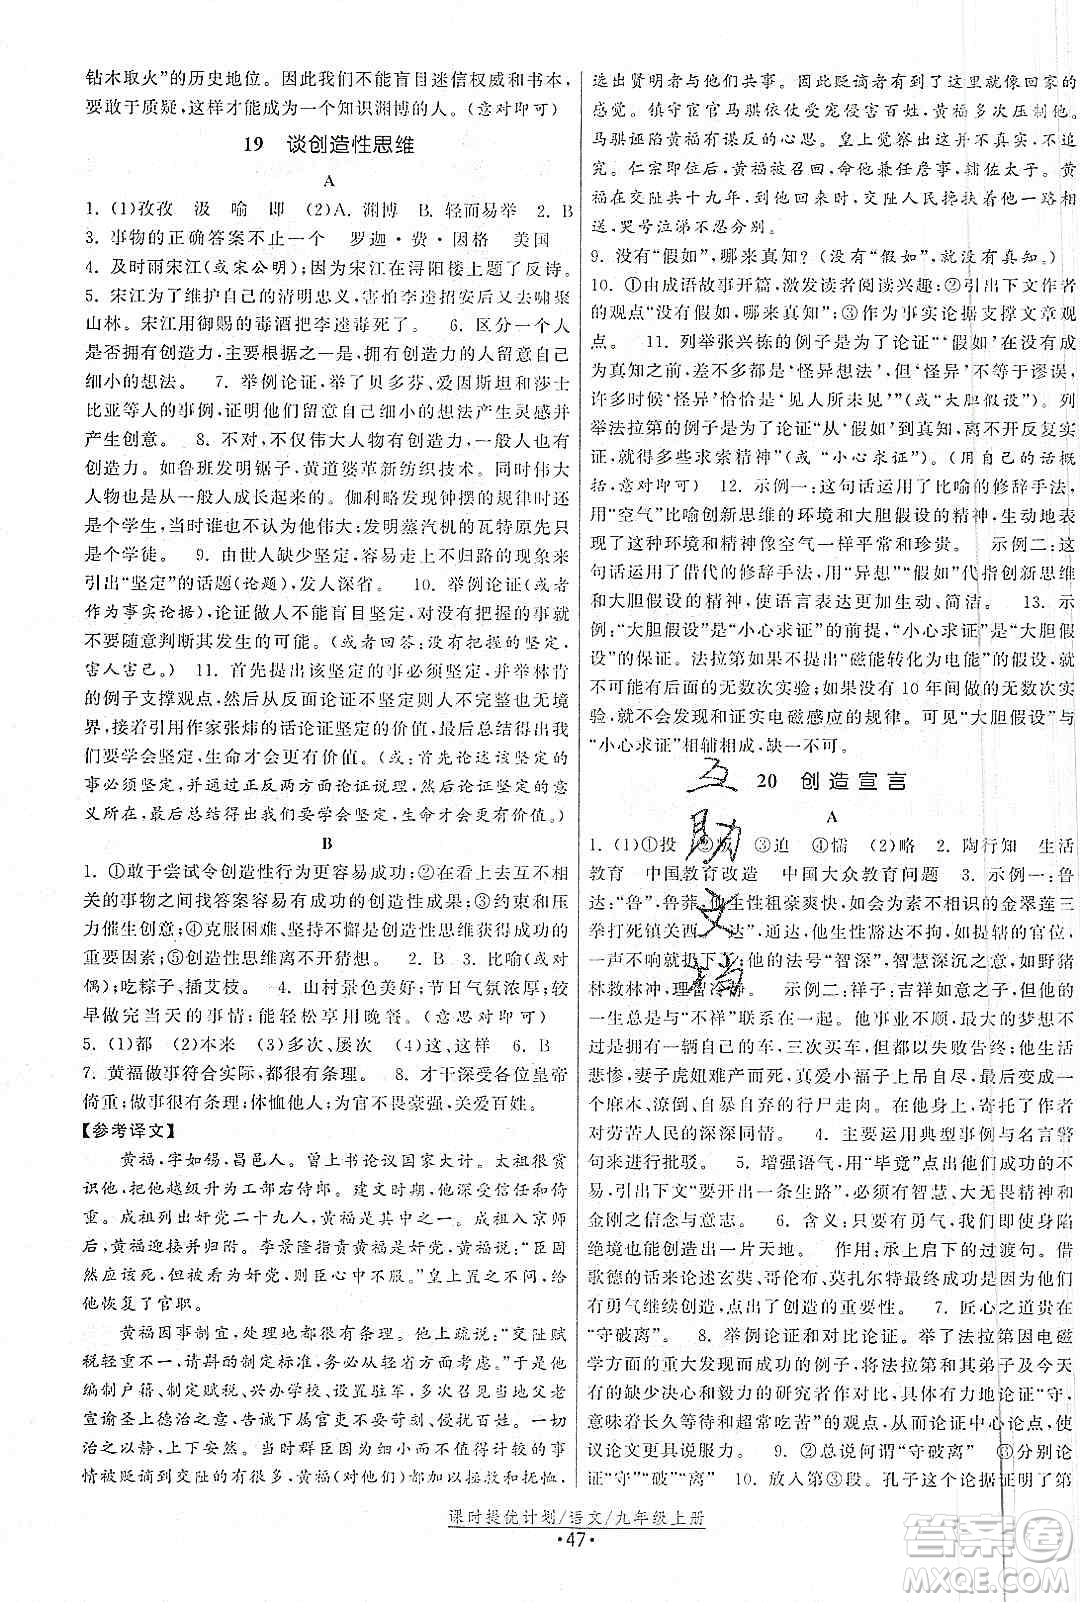 钻木取火”的历史地位。因此我们不能盲目迷信权威和书本，
要敢于质疑，这样才能成为一个知识渊博的人。（意对即可）
19 谈创造性思维
A
1. (1)孜孜 汲 喻 即 (2)A. 渊博 B. 轻而易举 2. B
3. 事物的正确答案不止一个 罗迦·费·因格 美国
4. 及时雨宋江（或宋公明）；宋江在浔阳楼上题了反诗。
5. 宋江为了维护自己的清明忠义，害怕李逵招安后去啸聚
山林。宋江用御赐的毒酒把李逵毒死了。 6. 区分一个人
是否拥有创造力，主要根据之一是，拥有创造力的人留意自己
细小的想法。 7. 举例论证，举了贝多芬、爱因斯坦和莎士
比亚等人的事例，证明他们留意自己细小的想法产生灵感并
产生创意。 8. 不对，不仅伟大人物有创造力，一般的人也有
创造力。如鲁班发明锯子，黄道婆革新纺织技术。再说，伟大
人物也是从一般人成长起来的。伽利略发现钟摆的规律时还
是个学生，当时谁也不认为他伟大；发明蒸汽机的瓦特原先只
是个学徒。 9. 由世人缺少坚定，容易走上不归路的现象来
引出“坚定”的话题（论题），发人深省。 10. 举例论证（或者
作为事实论据），论证做人不能盲目坚定，对没有把握的事就
不要随意判断其发生的可能。（或者回答：没有把握的坚定，
害人害己。） 11. 首先提出该坚定的事必须坚定，并举林肯
的例子支撑观点，然后从反面论证坚定则人不完整，没有境
界，接着引用作家张炜的话论证坚定的价值，最后得出结论我
们要学会坚定，生命才会更有价值。（或：首先论述应该坚定的
事必须坚定，然后阐述坚定的价值，最后指出学会坚定的意
义所在，号召大家要学会坚定。）
B
1. ①敢于尝试令创造性行为更容易成功；②在看上去互不相
关的事物之间找答案容易有成功的创造性成果；③约束和压
力催生创意；④克服困难、坚持不懈是创造性思维获得成功的
重要因素；⑤创造性思维离不开猜想。 2. B 3. 比喻（或对
偶）；吃粽子、插艾枝。 4. 山村景色美好；节日气氛浓厚；较
早做完当天的事情；能轻松享用晚餐。（意思对即可）
5. (1)都 (2)本来 (3)多次、屡次 (4)这、这样 6. B
7. 黄福做事符合实际，都很有条理。 8. 才干深受各位皇帝
倚重；做事很有条理；体恤他人；为官不畏豪强，关爱百姓。
【参考译文】
黄福，字如锡，昌邑人。曾上书论议国家大计。太祖很赏
识他，把他越级升为工部右侍郎。建文时期，他很受信任和倚
重。成祖列出奸党二十九人，黄福是其中之一。成祖入京师
后，黄福迎接并归附。李景隆指责黄福是奸党，黄福说：“臣固
然应该处死，但是把我看为奸党，则臣心中不服。”皇上置之不问，给
他恢复了官职。
黄福因事制宜，处理地都很有条理。他上疏说：“交阯赋
税轻重不一，请斟酌制定标准，务必从轻省方面考虑。”于是他
编制户籍、制定赋税、兴办学校、设置驻军。多次召见父老
宣谕圣上德治之意，告诫下属官吏不要苛刻、侵扰百姓。一切
治之以静，上下都很安定。当时群臣因为小的过失等各种事
情被贬谪到交阯的有很多，黄福都给予他们救济和抚恤，
选出贤明者与他们共事。因此贬谪者到了这里就像回家的
感觉。镇守宦官马骐依仗受宠侵害百姓，黄福多次压制他。
马骐诬陷黄福有谋反的心思。皇上觉察出这是诬陷，没有追
究。仁宗即位后，黄福被召回，命他兼任詹事，辅佐太子。黄
福在交阯共十九年，等到他回去时，交阯人民搀扶着他一路相
送，哭号泣涕不忍分别。
9. 没有“假如”，哪来真知？（或没有“假如”，难有真知。）
10. ①由成语故事开篇，激发读者阅读兴趣；②引出下文作者
的观点“没有‘假如’，哪来真知”；③作为事实论据支撑文章观
点。 11. 列举张兴栋的例子是为了论证“‘假如’在没有成
为真知之前，差不多就是‘怪异想法’，甚至近于谬误，但
许多时候‘怪异’恰恰是‘见人所未见’”（或“大胆假设”）。列
举法拉第的例子是为了论证“从‘假如’到真知，离不开反复实
证，就得多些求索精神”（或“小心求证”）。（用自己的话概
括，意对即可） 12. 示例一：这句话运用了比喻的修辞手法，
用“空气”比喻创新思维的环境和大胆假设的精神，生动地表
现了这种环境和精神像空气一样平常和珍贵。 示例二：这
句话运用了借代的修辞手法，用“异想”“假如”代指创新思维
和大胆假设的精神，使语言表达更加生动、简洁。 13. 示
例：“大胆假设”是“小心求证”的前提，“小心求证”是“大胆假
设”的保证。法拉第如果没有“磁能转化为电能”的假设，就不
可能有后面的无数次实验；如果没有 10 年间做的无数次实
验，就不可能发现和证实电磁感应的规律。可见“大胆假设”与
“小心求证”相辅相成，缺一不可。
20 创造宣言
A
1. (1)①投 ③迫 ④懦 (2)略 2. 陶行知 生活
教育 中国教育改造 中国大众教育问题 3. 示例一：鲁
达：“鲁”，鲁莽，他生性粗豪爽快，如为素不相识的金翠莲三
拳打死镇关西。“达”，通达，他生性豁达不拘，提辖的官位，
一声吩咐就扔下了；他的法号“智深”，智谋深沉之意，如野猪
林救林冲，理智冷静。 示例二：祥子：吉祥如意之子，但他
的命运却始终与“不祥”联系在一起。他事业不顺，最大的梦想
不过是拥有一辆自己的车，三次买车，却以失败告终；他生活
悲惨，妻子虎妞难产而死，真爱小福子上吊自杀，最后他成为一
个麻木、潦倒、自暴自弃的行尸走肉。他的名字寄予了作者
对劳苦人民的深深同情。 4. 主要运用典型事例与名言警
句来进行批驳。 5. 增强语气，用“毕竟”点出他们成功的不
易，引出下文“要开出一条生路”，必须有智慧、大无畏精神和
金刚之信念与意志。 6. 含义：只要有勇气，我们即使身陷
绝境也能创造出一片天地。 作用：承上启下的过渡句。借
歌德的话来论述玄奘、哥伦布、莫扎尔特最终成功的关键是因
有勇气继续创造，点出了创造的重要性。 7. 匠心之道贵在
“守破离”。 8. 举例论证和对比论证。举了法拉第因电磁
学方面的重大发现而成功的例子，将法拉第和学习者以及今天
的缺少决心和毅力的研究者作对比，具体有力地论证了“守，
意味着长久等待和超常吃苦”的观点，从而论证中心论点，使
议论文更具说服力。 9. ②总说何谓“守破离” ③分别论
证“守”“破”“离” 10. 放入第③段。孔子这个论据证明了第
课时提优计划/语文/九年级上册
·47·
互助文档
答案圈
MXQE.COM